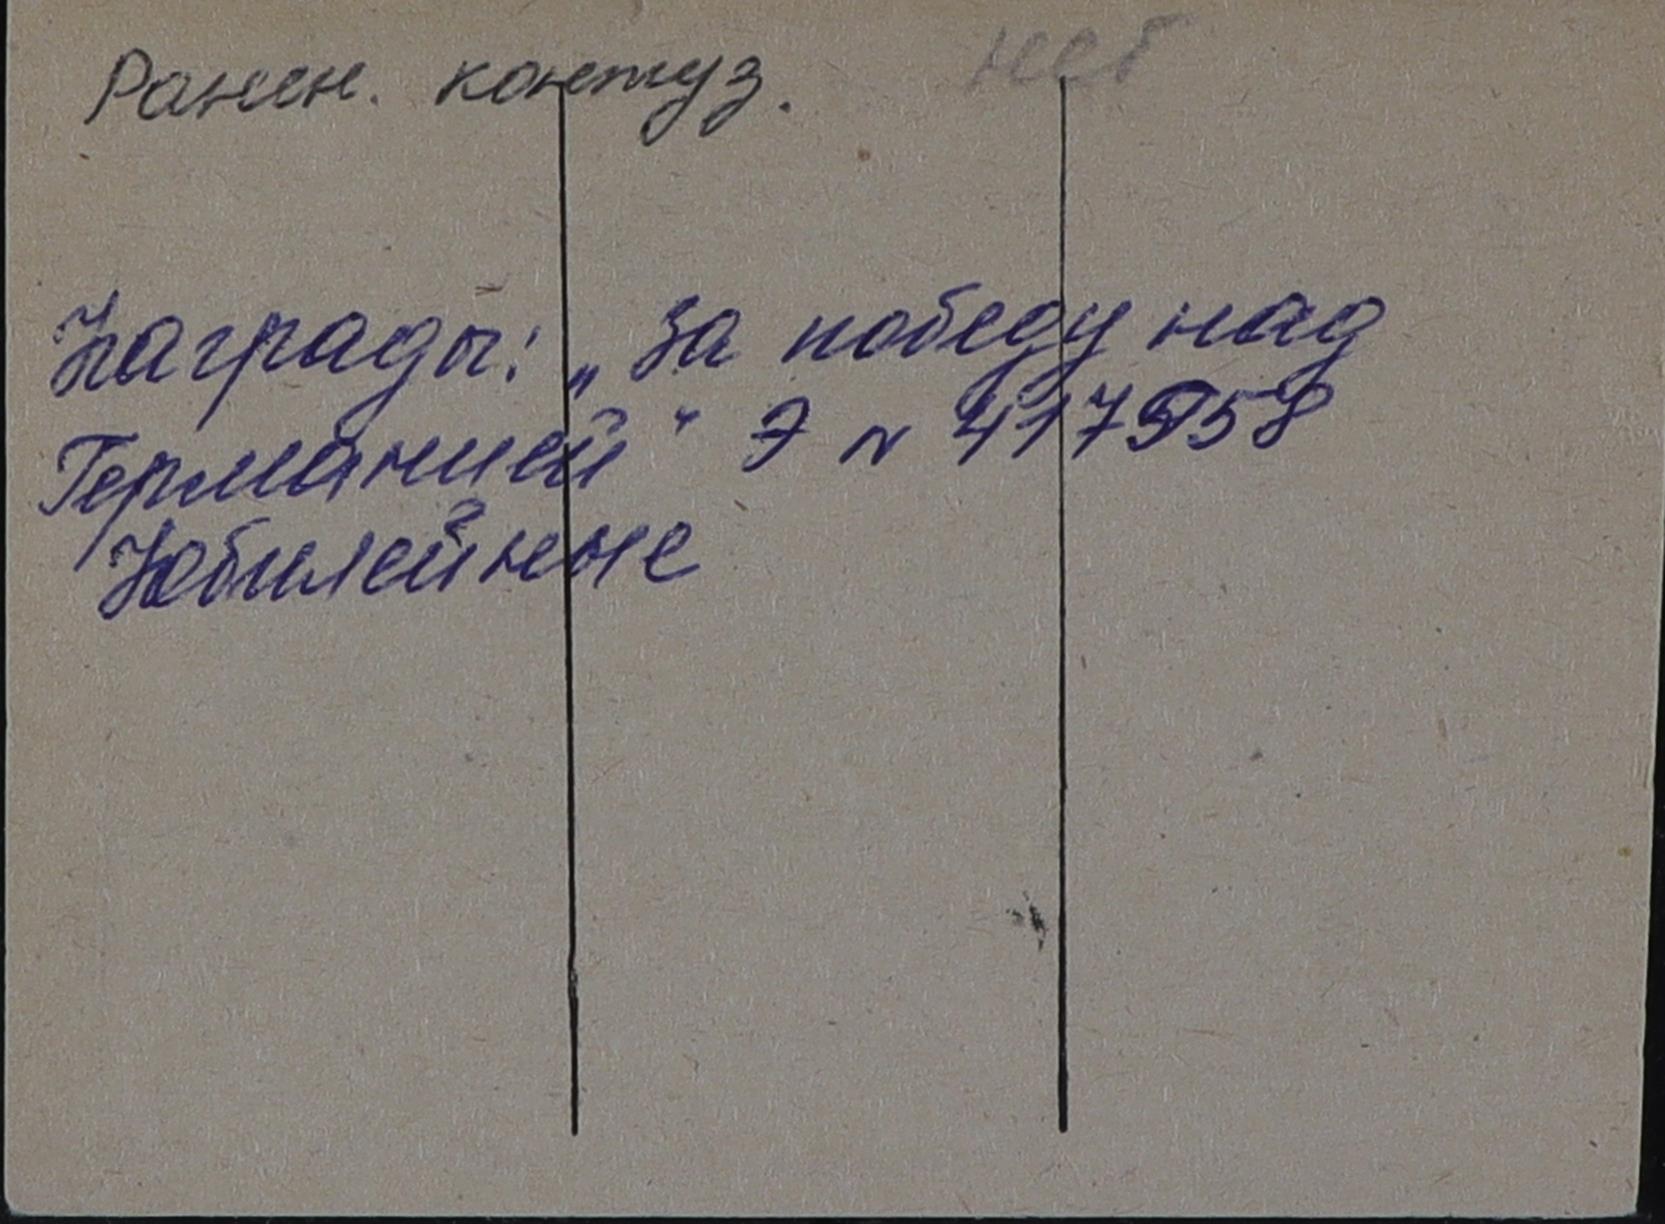 Ранен. контуз. нет
Награды: „За победу над
Германией" Э № 417958
Юбилейные